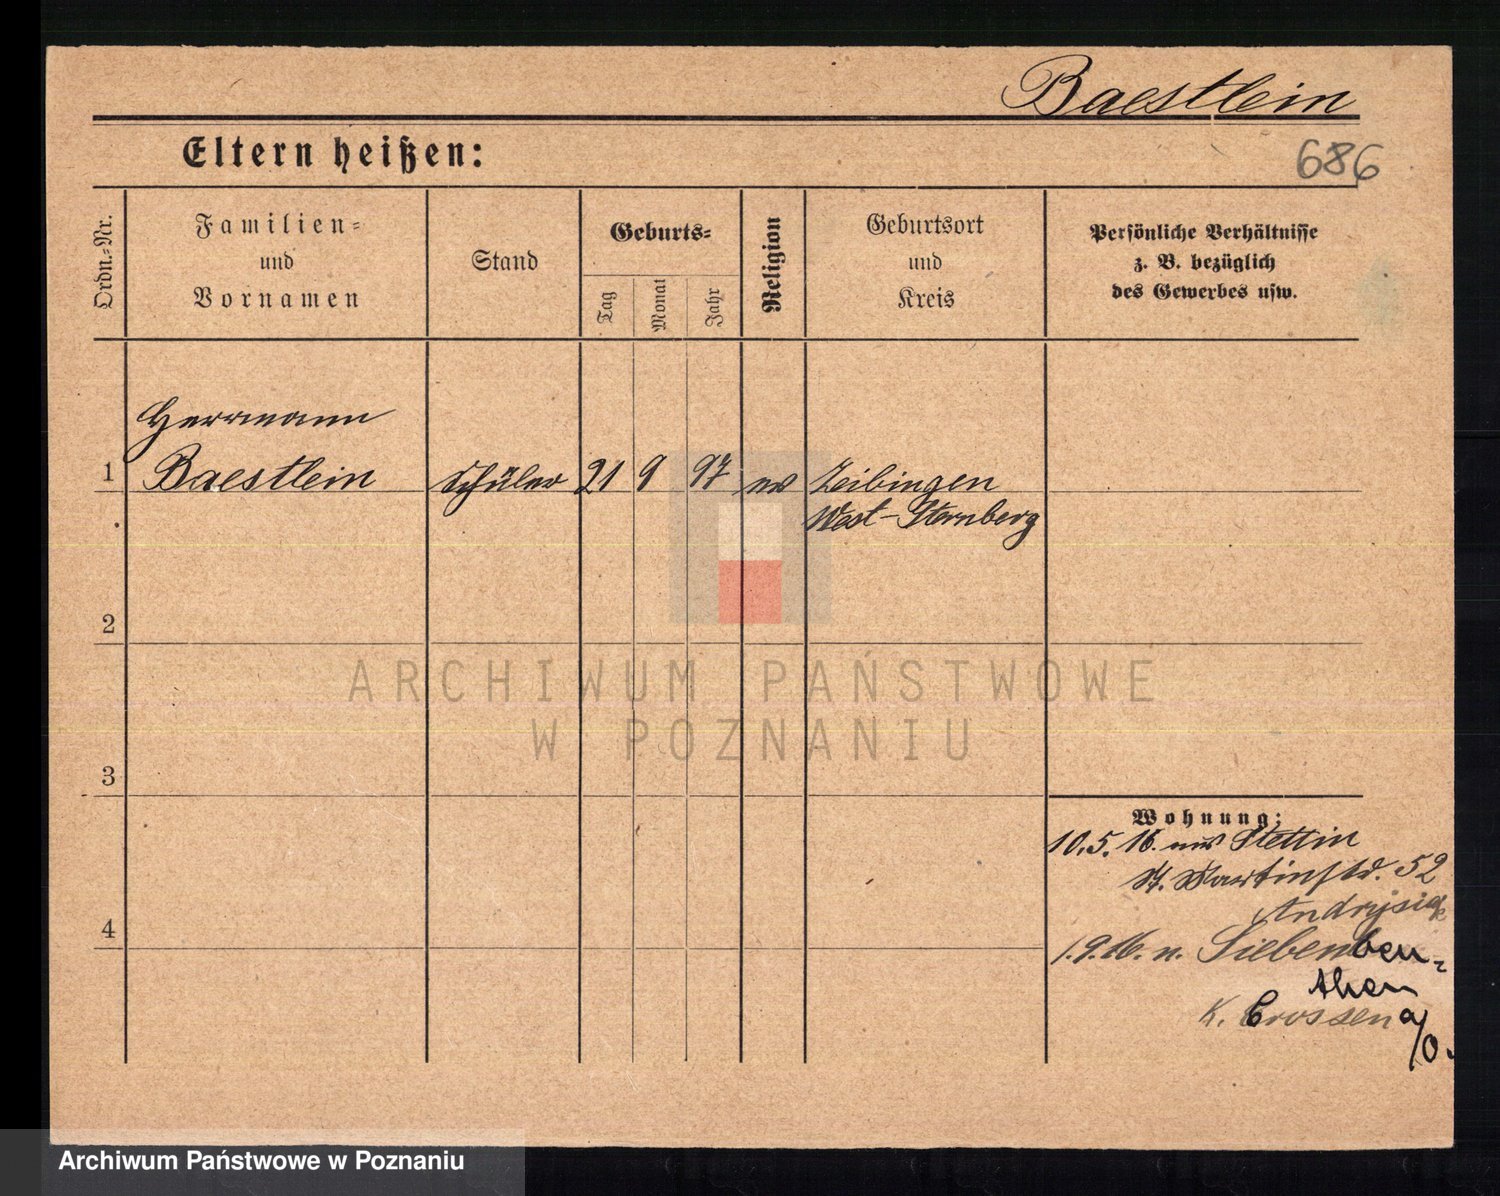 Baestlein
Eltern heißen:
686
Ordn.-Nr.
Familien-
und
Vornamen
Stand
Geburts-
Tag
Monat
Jahr
Religion
Geburtsort
und
Kreis
Persönliche Verhältnisse
z. B. bezüglich
des Gewerbes usw.
Herrmann
1 Baestlein Schüler 21 9 97 ev Zeibingen
West-Sternberg
2
ARCHIWUM PAŃSTWOWE
W POZNANIU
3
Wohnung:
10.5.16. aus Stettin
St. Martinstr. 52
Andrysiak
4
1.9.16. n. Siebenben-
then
K. Crossen a/O.
Archiwum Państwowe w Poznaniu